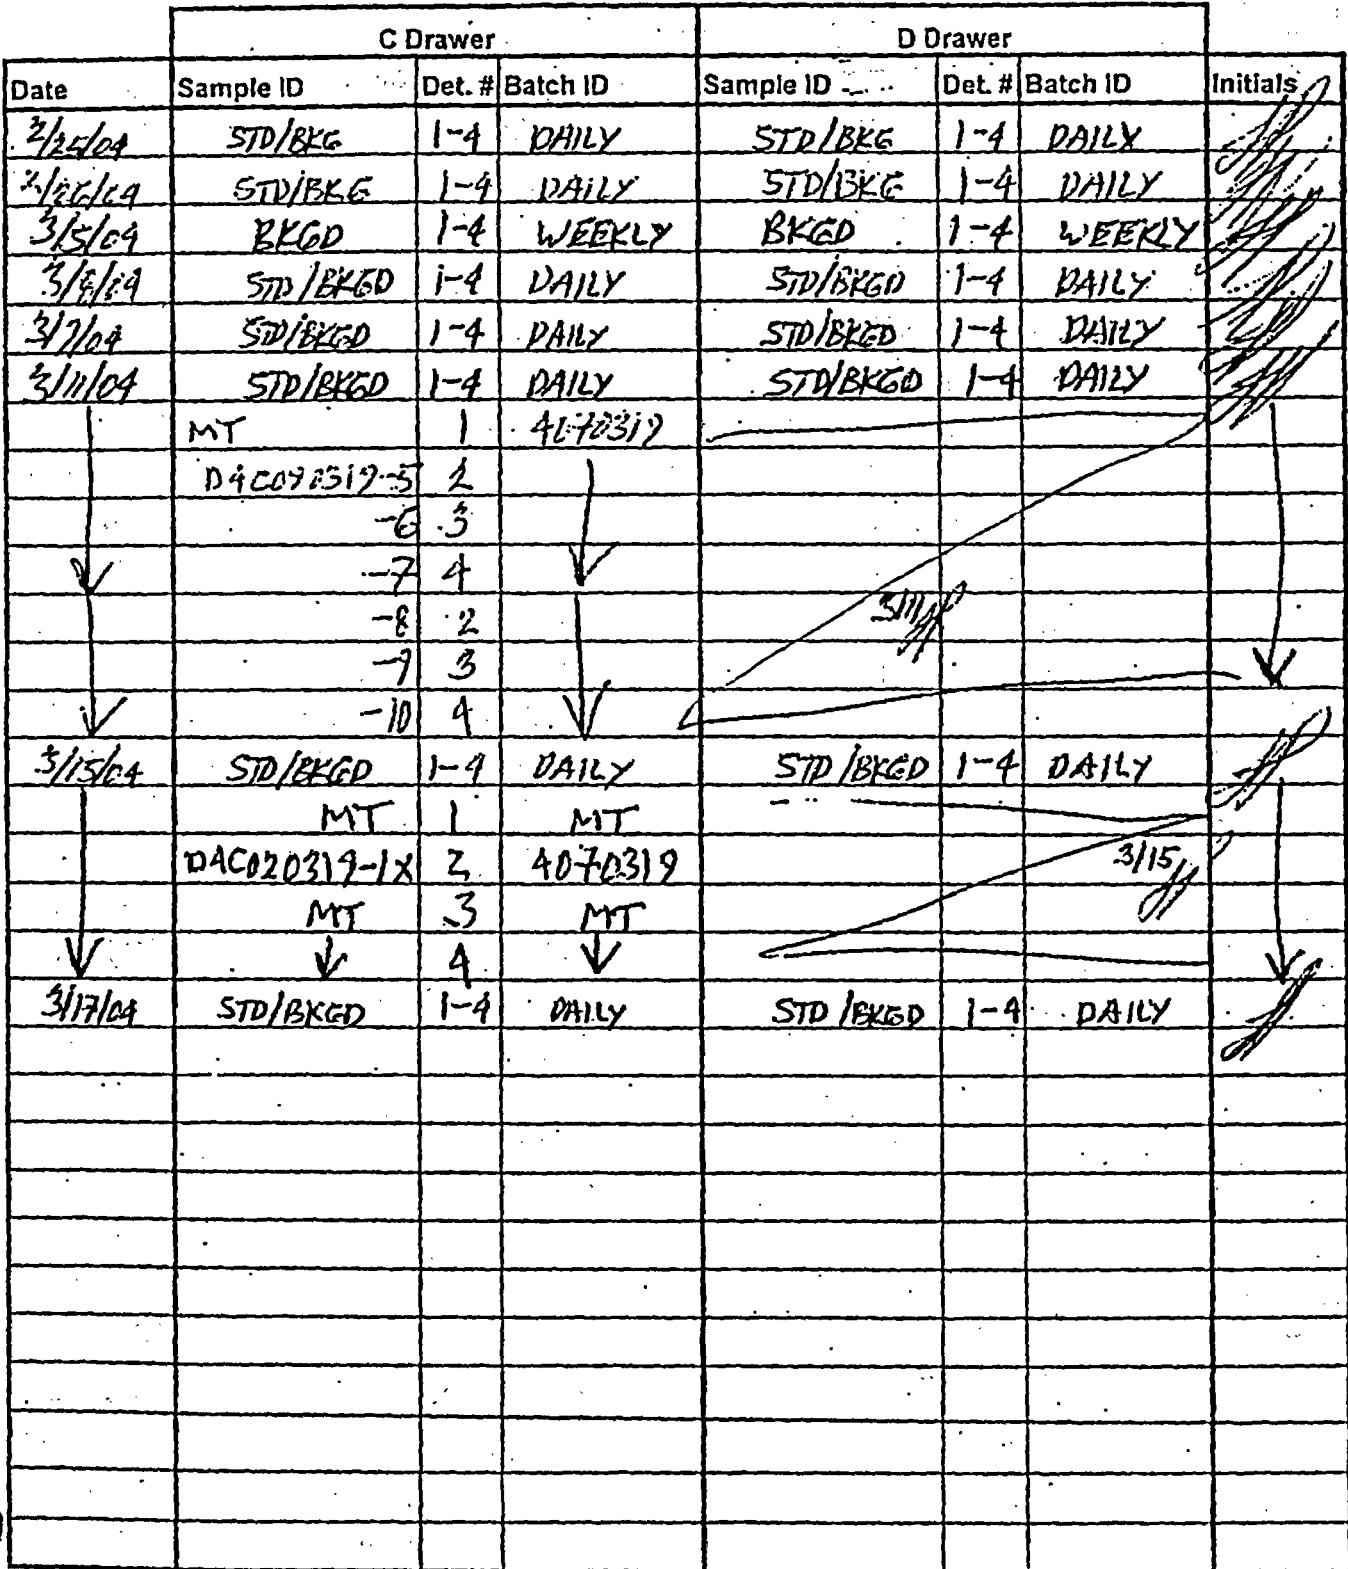 C Drawer D Drawer
Date Sample ID Det. # Batch ID Sample ID Det. # Batch ID Initials
2/25/04 STD/BKG 1-4 DAILY STD/BKG 1-4 DAILY
2/26/04 STD/BKG 1-4 DAILY STD/BKG 1-4 DAILY
3/5/04 BKGD 1-4 WEEKLY BKGD 1-4 WEEKLY
3/8/04 STD/BKGD 1-4 DAILY STD/BKGD 1-4 DAILY
STD/BKGD 1-4 DAILY STD/BKGD 1-4 DAILY
3/11/04 STD/BKGD 1-4 DAILY STD/BKGD 1-4 DAILY
MT 1 4070319
2
-6 3
-7 4
-8 2 3/11
-9 3
-10 4
3/15/04 STD/BKGD 1-4 DAILY STD/BKGD 1-4 DAILY
MT 1 MT
D4C020319-1X 2 4070319 3/15
MT 3 MT
4
3/17/04 STD/BKGD 1-4 DAILY STD/BKGD 1-4 DAILY